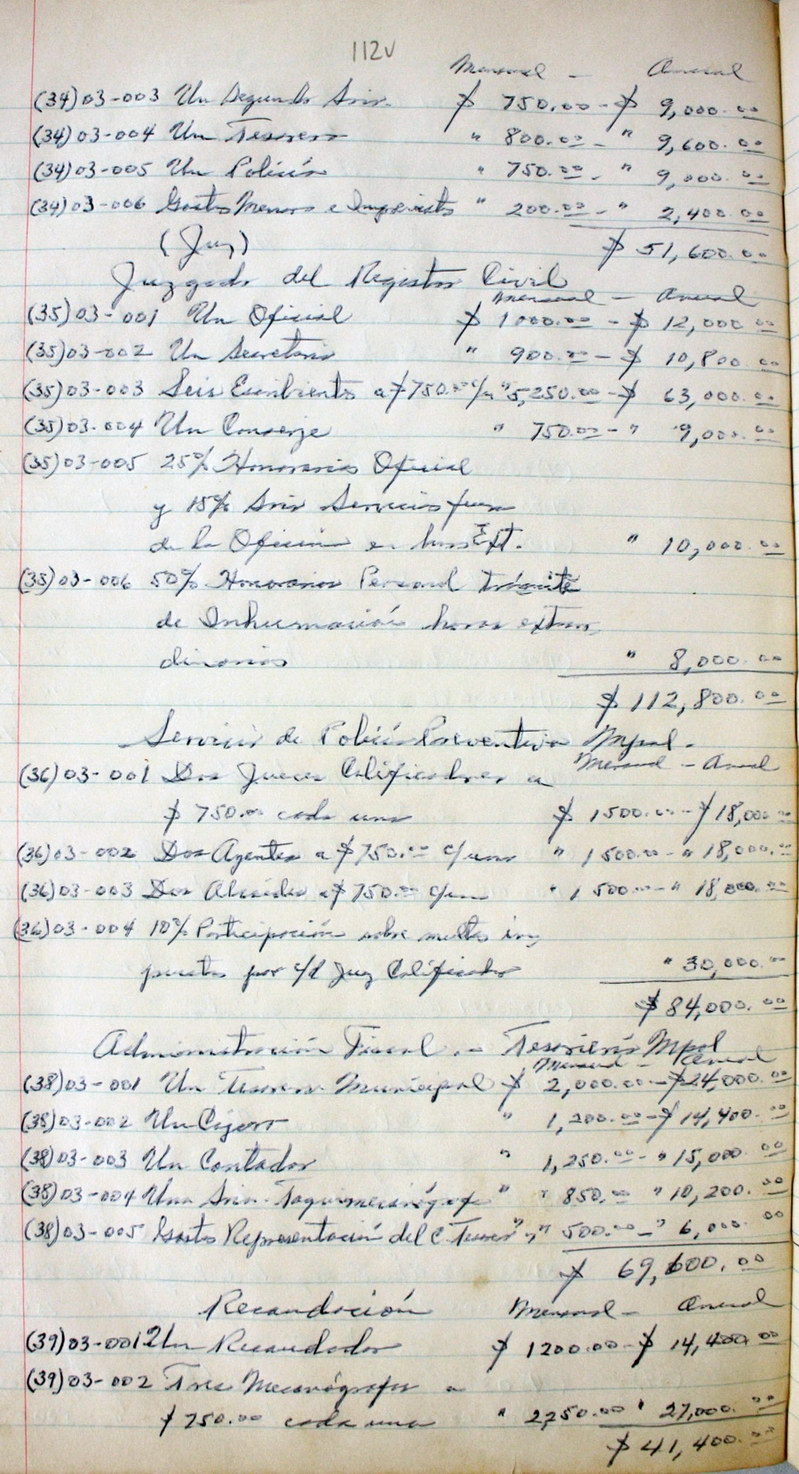 112v
Mensual - Anual
(34)03-003 Un Segundo Srio. $ 750.00 - $ 9,000.00
(34)03-004 Un Tesorero " 800.00 - " 9,600.00
(34)03-005 Un Policía " 750.00 - " 9,000.00
(34)03-006 Gastos Menores e Imprevistos " 200.00 - " 2,400.00
(Juz) $ 51,600.00
Juzgado del Registro Civil
Mensual - Anual
(35)03-001 Un Oficial $ 1000.00 - $ 12,000.00
(35)03-002 Un Secretario " 900.00 - $ 10,800.00
(35)03-003 Seis Escribientes a $750.00 c/u " 5,250.00 - $ 63,000.00
(35)03-004 Un Conserje " 750.00 - " 9,000.00
(35)03-005 25% Honorarios Oficial
y 15% Srio Servicios fuera
de la Oficina en horas Ext. " 10,000.00
(35)03-006 50% Honorarios Personal trámite
de Inhumación horas extraor
dinarias " 8,000.00
$ 112,800.00
Servicio de Policía Preventiva Mpal.
Mensual - Anual
(36)03-001 Dos Jueces Calificadores a
$ 750.00 cada uno $ 1500.00 - $ 18,000.00
(36)03-002 Dos Agentes a $750.00 c/uno " 1500.00 - " 18,000.00
(36)03-003 Dos Alcaides a $750.00 c/un " 1,500.00 - " 18,000.00
(36)03-004 10% Participación sobre multas im,
puestas por c/d Juez Calificador " 30,000.00
$ 84,000.00
Administración Fiscal .- Tesorería Mpal
Mensual - Anual
(38)03-001 Un Tesorero Municipal $ 2,000.00 - $24,000.00
(38)03-002 Un Cajero " 1,200.00 - $ 14,400.00
(38)03-003 Un Contador " 1,250.00 - " 15,000.00
(38)03-004 Una Sria. Taquimecanógrafa " " 850.00 " 10,200.00
(38)03-005 Gastos Representación del C. Tesorero " " 500.00 - " 6,000.00
$ 69,600.00
Recaudación Mensual - Anual
(39)03-001 Un Recaudador $ 1200.00 - $ 14,400.00
(39)03-002 Tres Mecanógrafas a
$ 750.00 cada una " 2,250.00 " 27,000.00
$ 41,400.00